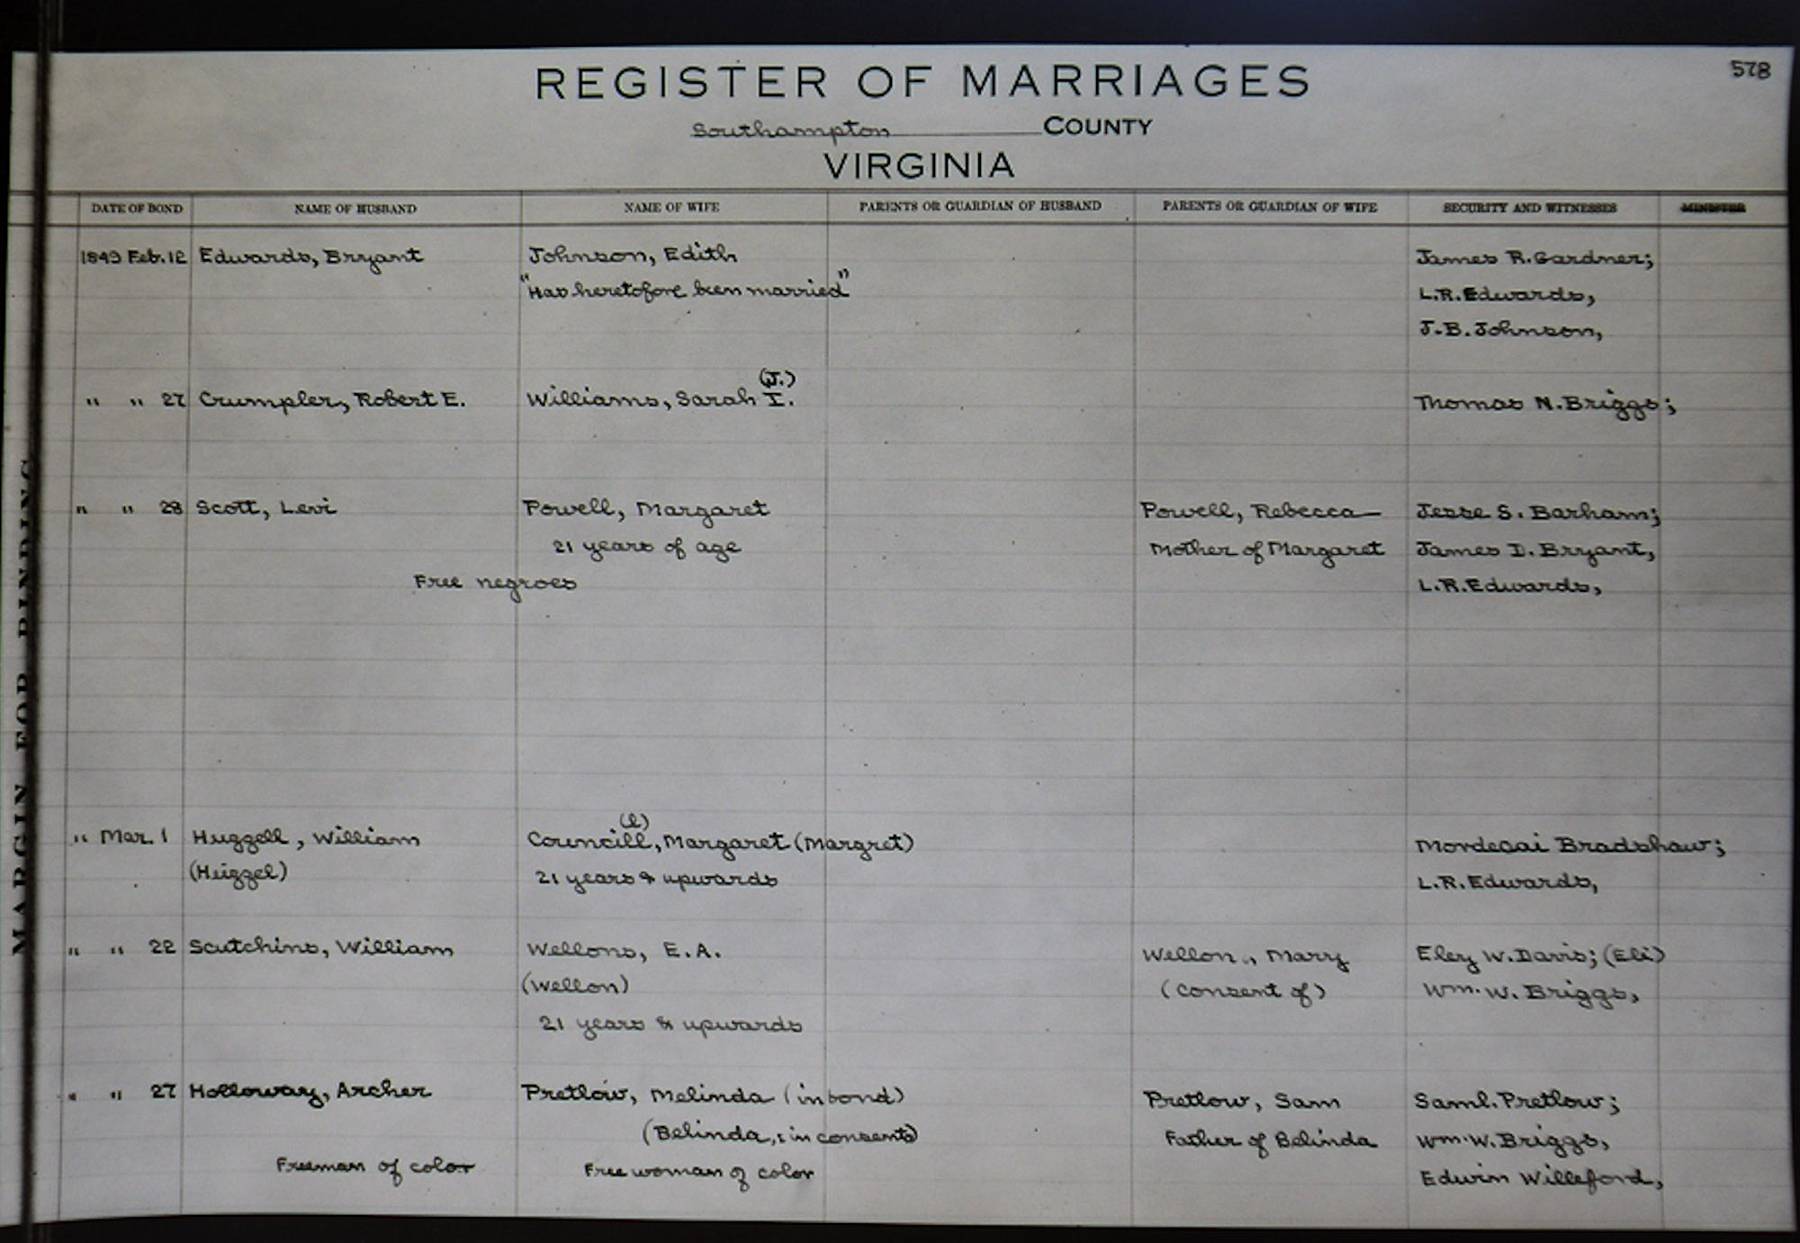 578
REGISTER OF MARRIAGES
Southampton COUNTY
VIRGINIA
DATE OF BOND NAME OF HUSBAND NAME OF WIFE PARENTS OR GUARDIAN OF HUSBAND PARENTS OR GUARDIAN OF WIFE SECURITY AND WITNESSES MINISTER
1849 Feb. 12 Edwards, Bryant Johnson, Edith James R. Gardner;
"Has heretofore been married" L.R. Edwards,
J.B. Johnson,
(J.)
" " 27 Crumpler, Robert E. Williams, Sarah I. Thomas N. Briggs;
" " 28 Scott, Levi Powell, Margaret Powell, Rebecca Jesse S. Barham;
21 years of age Mother of Margaret James D. Bryant,
Free negroes L.R. Edwards,
(l)
" Mar. 1 Huggell, William Councill, Margaret (Margret) Mordecai Bradshaw;
(Huggel) 21 years & upwards L.R. Edwards,
" " 22 Scutchins, William Wellons, E.A. Wellon, Mary Eley W. Davis; (Eli)
(Wellon) (Consent of) Wm. W. Briggs,
21 years & upwards
" " 27 Holloway, Archer Pretlow, Melinda (in bond) Pretlow, Sam Saml. Pretlow;
(Belinda, in consents) Father of Belinda Wm. W. Briggs,
Freeman of color Free woman of color Edwin Willeford,
MARGIN FOR BINDING